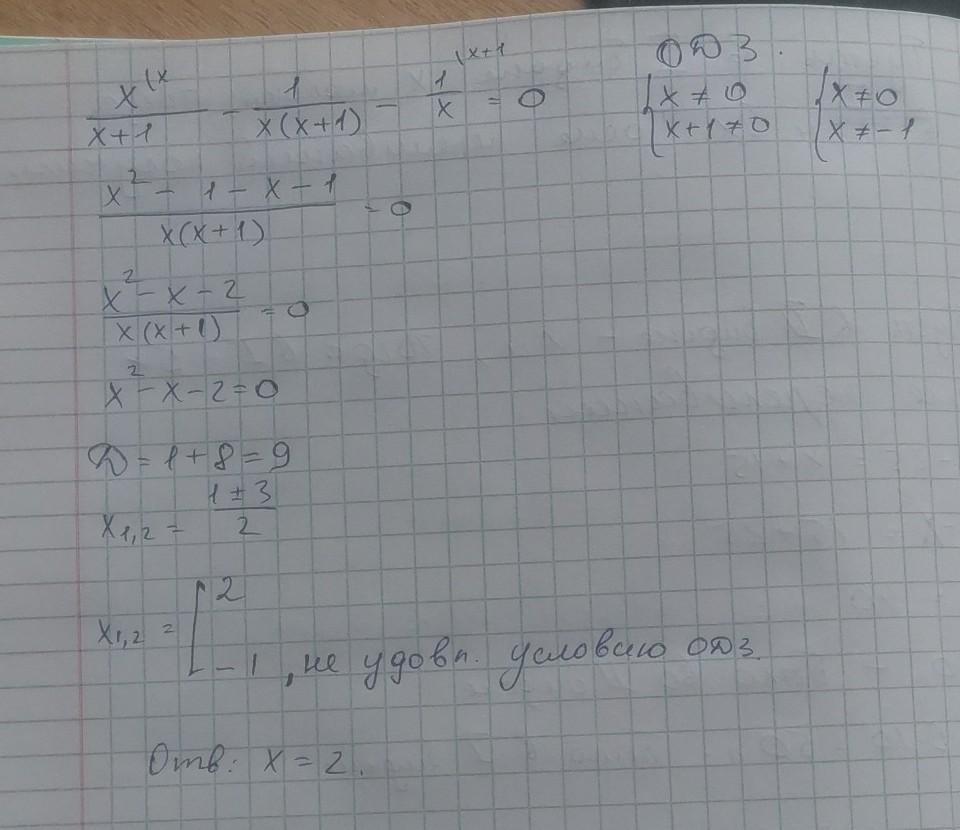 x^(x / x+1 - 1 / x(x+1) - 1^(x+1 / x = 0
ОДЗ.
{ x ≠ 0
x+1 ≠ 0
{ x ≠ 0
x ≠ -1
x² - 1 - x - 1 / x(x+1) = 0
x² - x - 2 / x(x+1) = 0
x² - x - 2 = 0
D = 1 + 8 = 9
x1,2 = 1 ± 3 / 2
x1,2 = [ 2
-1, не удовл. условию ОДЗ.
Отв: x = 2.